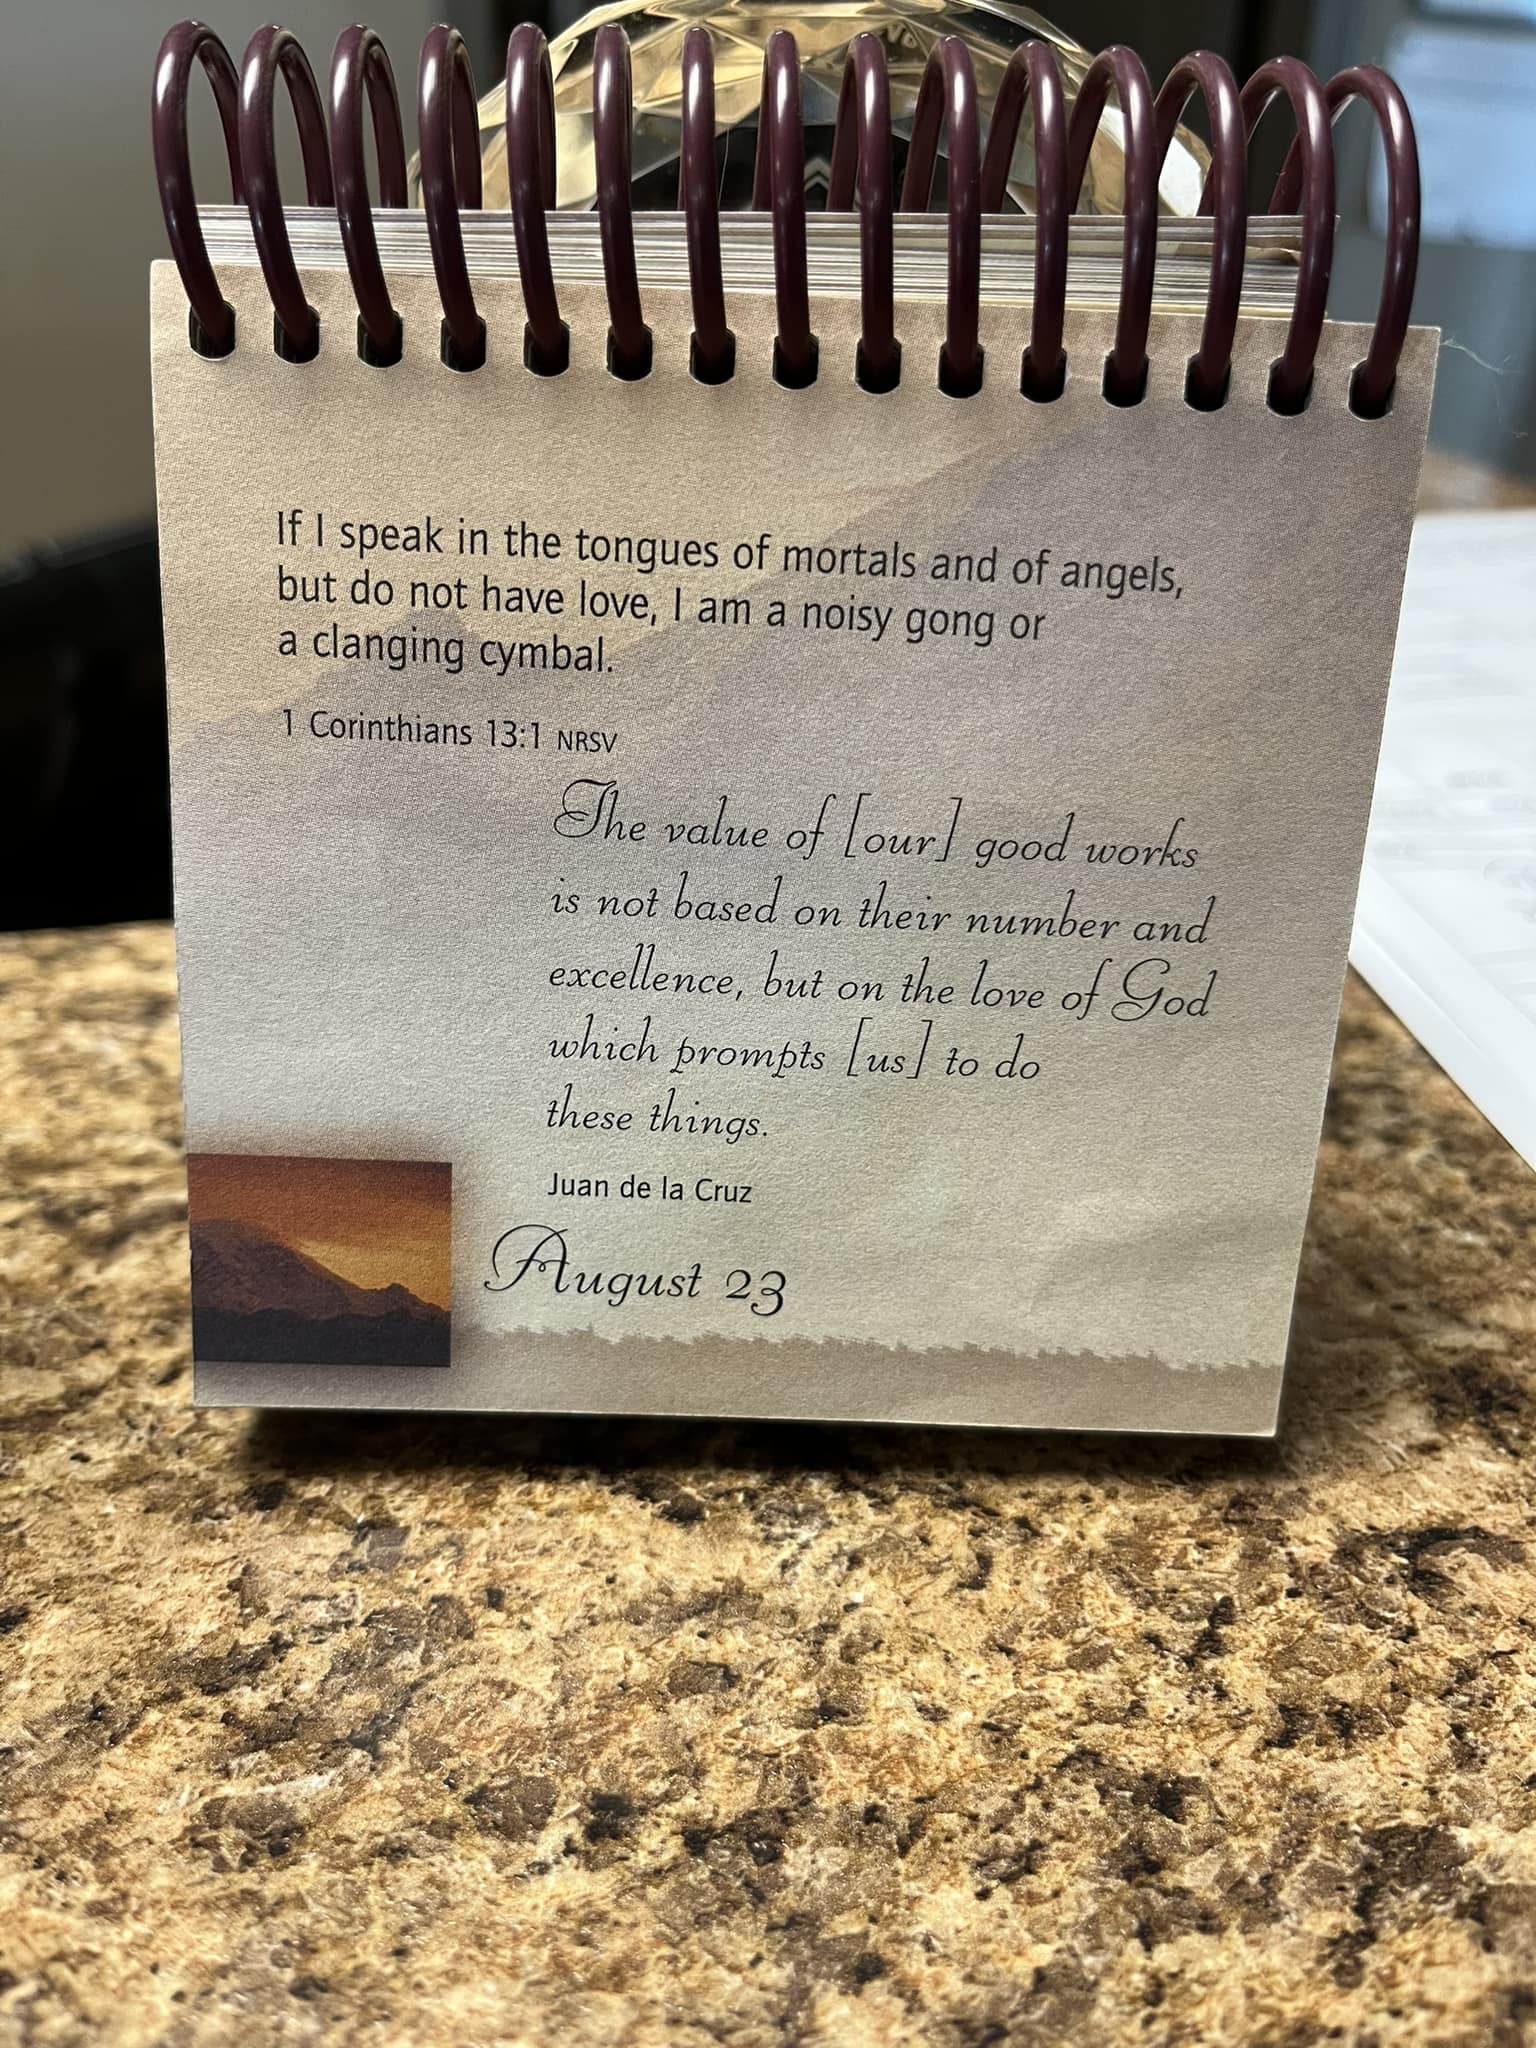 If I speak in the tongues of mortals and of angels,
but do not have love, I am a noisy gong or
a clanging cymbal.
1 Corinthians 13:1 NRSV
The value of [our] good works
is not based on their number and
excellence, but on the love of God
which prompts [us] to do
these things.
Juan de la Cruz
August 23